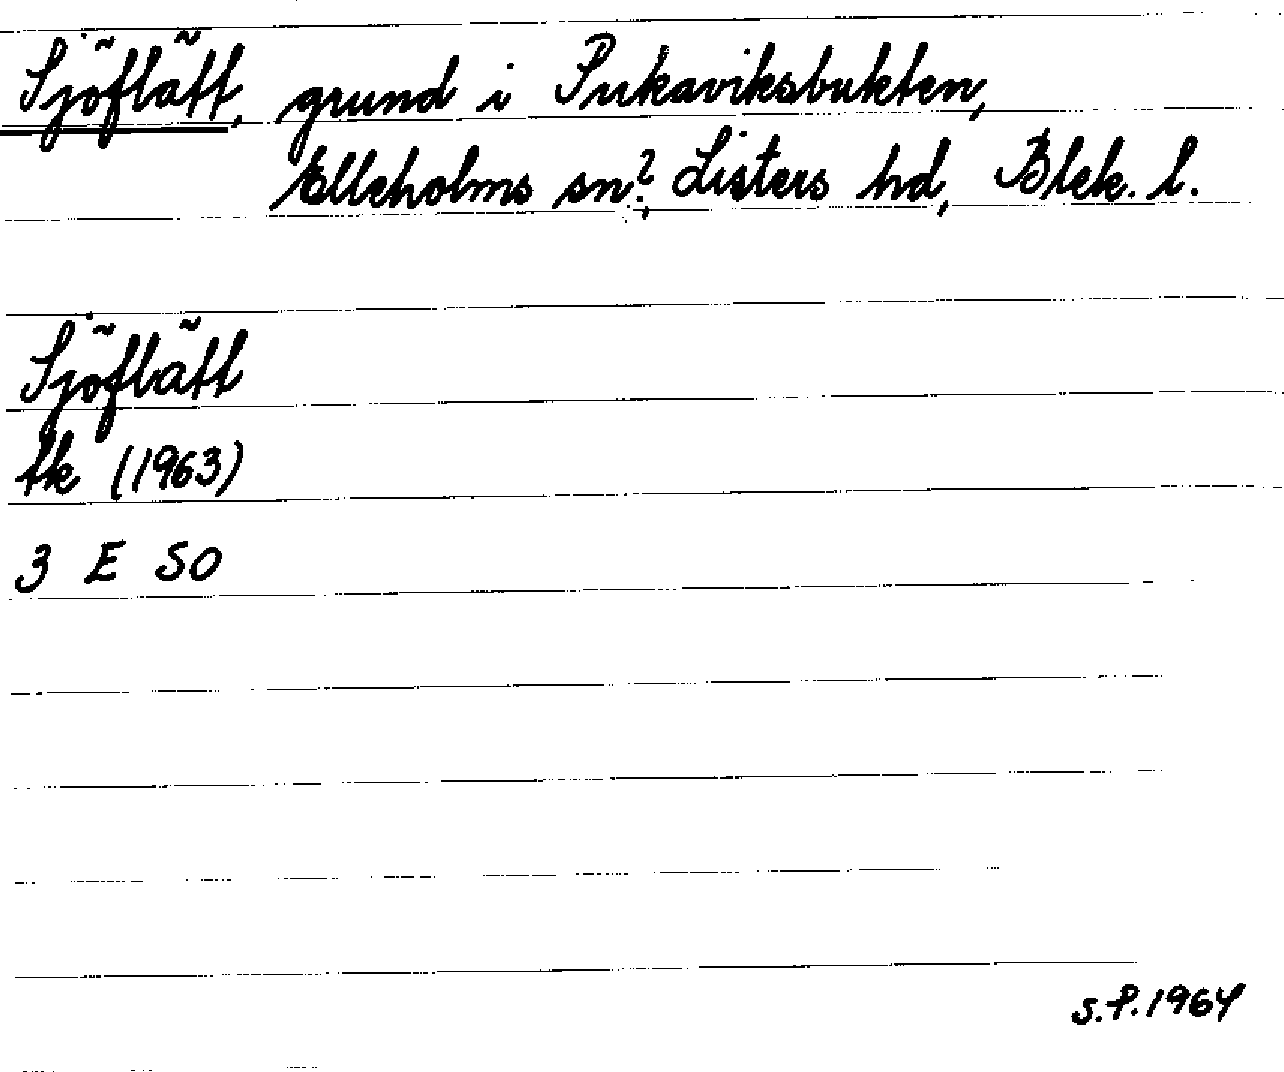 Sjöflätt, grund i Pukaviksbukten,
Elleholms sn?, Listers hd, Blek. l.
Sjöflätt
tk (1963)
3 E SO
S.P. 1964